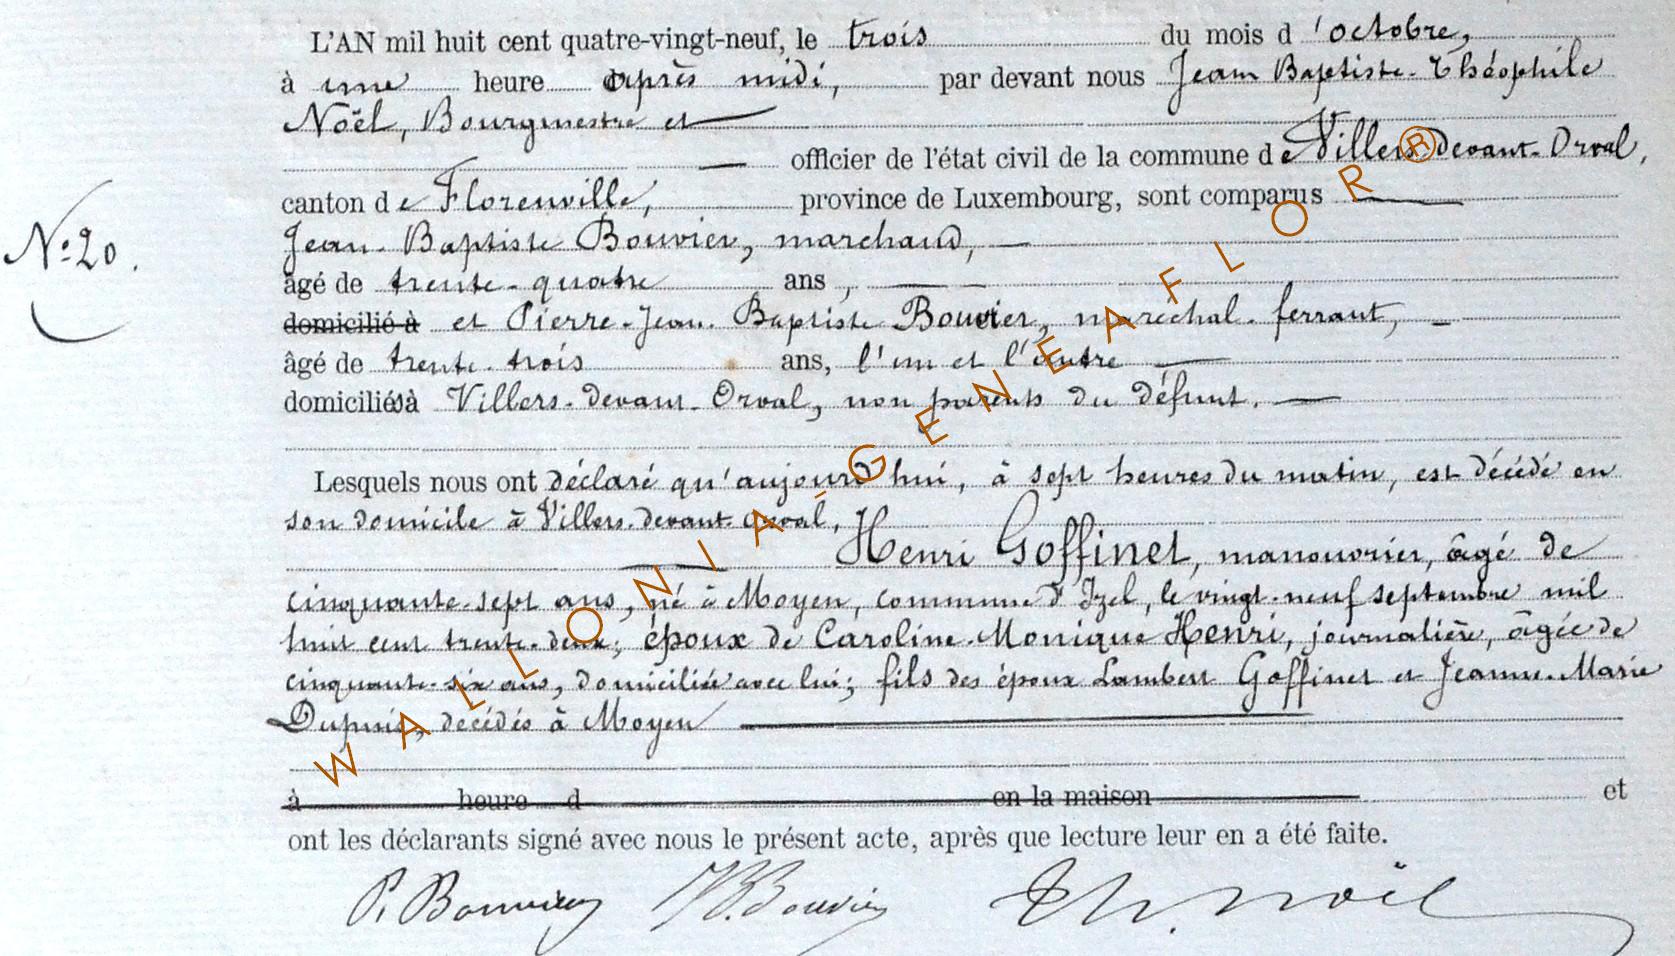 L'AN mil huit cent quatre-vingt-neuf, le trois du mois d'octobre,
à une heure après midi, par devant nous Jean Baptiste-Théophile
Noël, Bourgmestre et
officier de l'état civil de la commune de Villers-devant-Orval,
canton de Florenville, province de Luxembourg, sont comparus
N° 20.
Jean-Baptiste Bouvier, marchand,
âgé de trente-quatre ans,
domicilié à et Pierre-Jean-Baptiste Bouvier, maréchal-ferrant,
âgé de trente-trois ans, l'un et l'autre
domiciliés à Villers-devant-Orval, non parents du défunt.
Lesquels nous ont déclaré qu'aujourd'hui, à sept heures du matin, est décédé en
son domicile à Villers-devant-Orval,
Henri Goffinet, manouvrier, âgé de
cinquante-sept ans, né à Moyen, commune d'Izel, le vingt-neuf septembre mil
huit cent trente-deux; époux de Caroline-Monique Henri, journalière, âgée de
cinquante-six ans, domiciliée avec lui; fils des époux Lambert Goffinet et Jeanne-Marie
Dupuis, décédés à Moyen
à heure d en la maison et
ont les déclarants signé avec nous le présent acte, après que lecture leur en a été faite.
P. Bouvier JB. Bouvier Th. Noël
WALLONIA-GENEAFLOR®